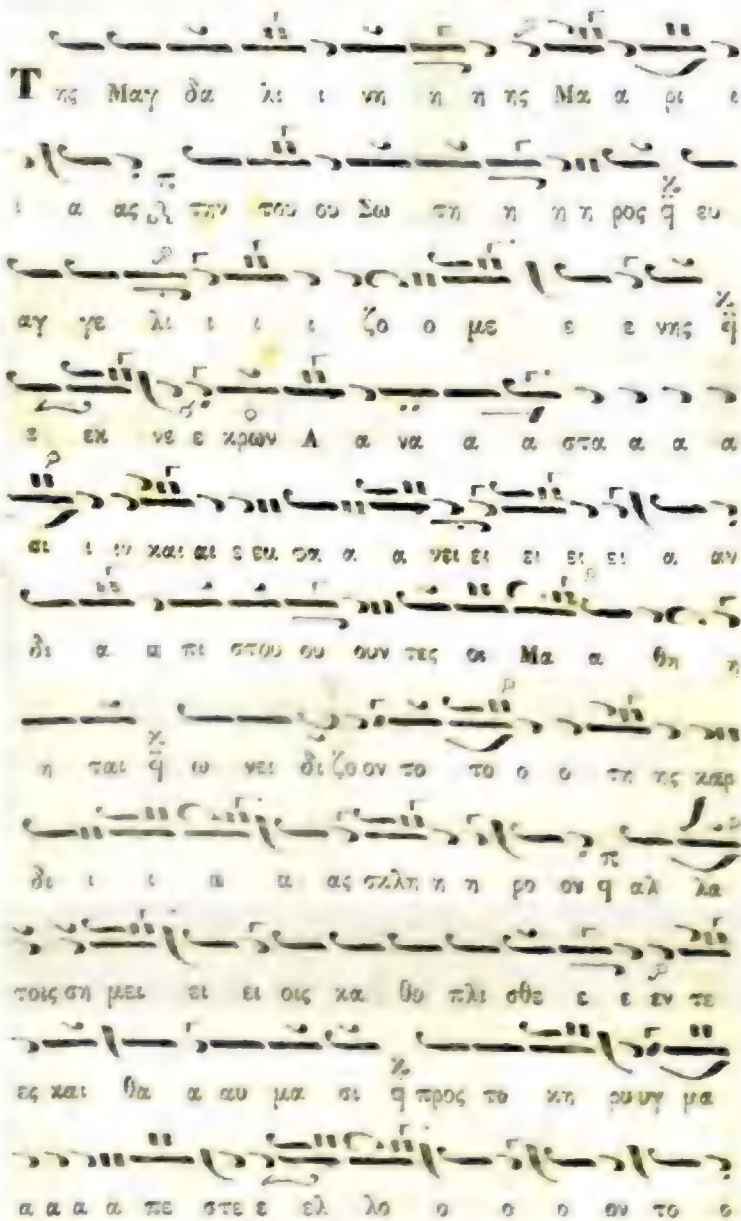 Της Μαγ δα λι ι νη η η ης Μα α ρι ε
ι α ας την του ου Σω τη η η η ρος ευ
αγ γε λι ι ι ι ζο ο με ε ε νης
ε εκ νε ε κρων Α α να α α στα α α α
σι ι ιν και αι ε εκ φα α α νει ει ει ει ει α αν
δι α α πι στου ου ουν τες οι Μα α θη η
η ται ω νει δι ζο ον το το ο ο τη ης καρ
δι ι ι α α ας σκλη η η ρο ον αλ λα
τοις ση μει ει ει οις κα θο πλι σθε ε ε εν τε
ες και θα α αυ μα σι προς το κη ρυ υγ μα
α α α α πε στε ε ελ λο ο ο ο ον το ο